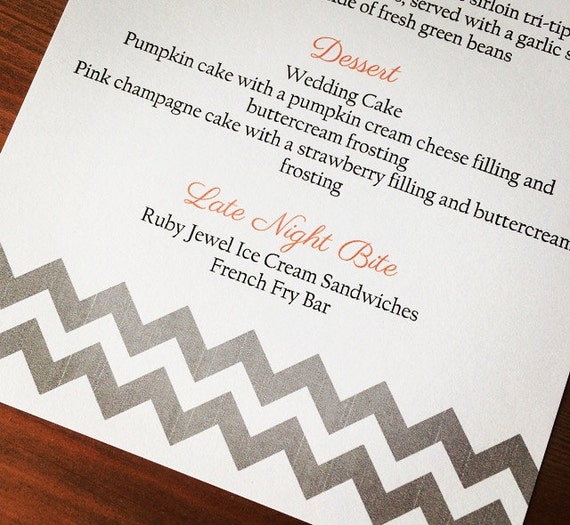 sirloin tri-tip
served with a garlic
of fresh green beans
Dessert
Wedding Cake
Pumpkin cake with a pumpkin cream cheese filling and
buttercream frosting
Pink champagne cake with a strawberry filling and buttercream
frosting
Late Night Bite
Ruby Jewel Ice Cream Sandwiches
French Fry Bar